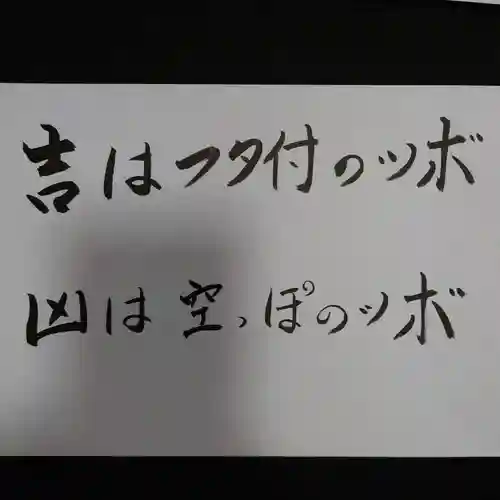 吉はフタ付のツボ
凶は空っぽのツボ